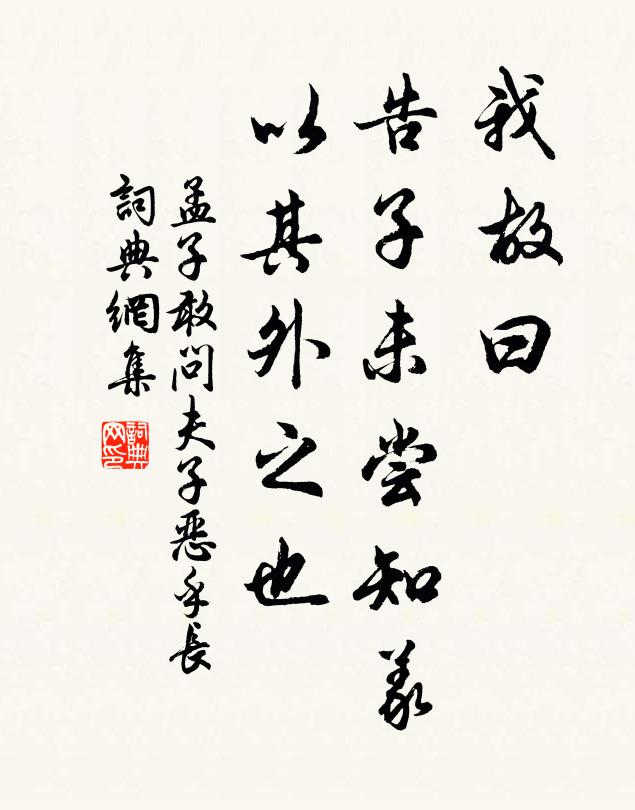 我故曰
告子未尝知義
以其外之也
孟子敢問夫子惡乎長
詞典網集
詞典
网印